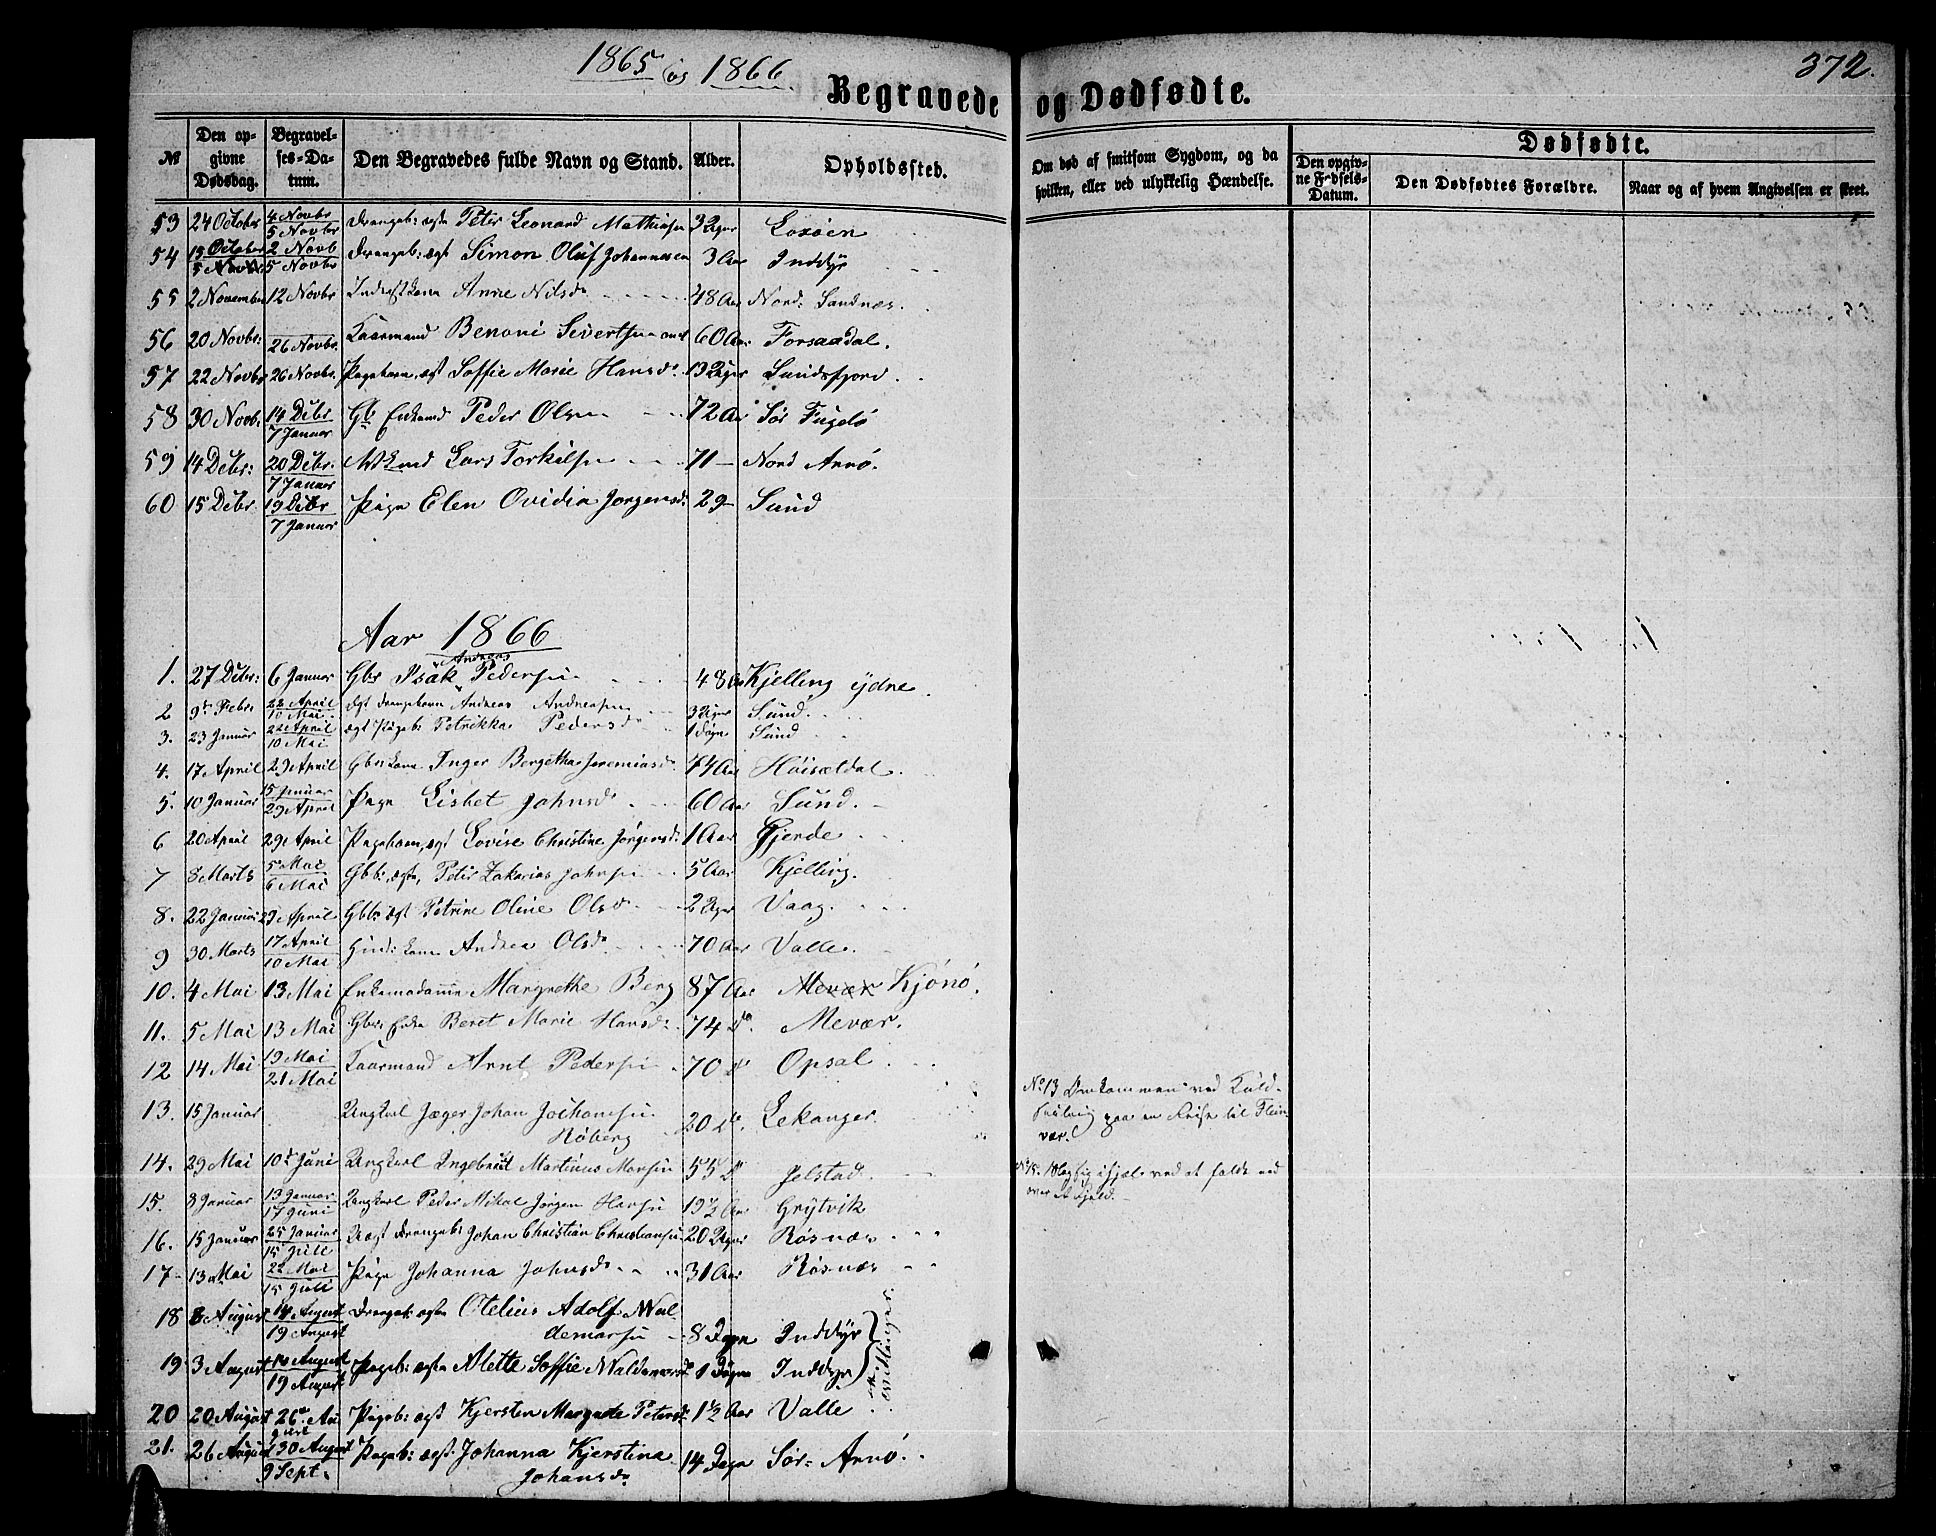 1865 og 1866
372.
Begravede og Dødfødte.
№
Den opgivne Dødsdag.
Begravelses-Datum.
Den Begravedes fulde Navn og Stand.
Alder.
Opholdssted.
Om død af smitsom Sygdom, og da hvilken, eller ved ulykkelig Hændelse.
Dødfødte.
Den opgivne Fødsels-Datum.
Den Dødfødtes Forældre.
Naar og af hvem Angivelsen er skeet.
53 24 October 4 Novbr 5 Novbr Drengeb: ægte Peter Leonard Mathisen 3 Uger
54 15 October 5 Novbr 2 Novb 5 Novbr Drengeb: ægt Simon Oluf Johannesen 3 Aar Inddyr
55 2 November 12 Novbr Anne Nilsd 48 Aar Nord: Sandnæs.
56 20 Novbr: 26 Novbr. Kaarmand Benoni Sivertsen 60 Aar Forsaadal.
57 22 Novbr 26 Novbr. Pigebarn, ægt Soffie Marie Hansd. 13 Uger Sundsfjord.
58 30 Novb: 14 Debr 7 Januar Gb: Enkemd Peder Olsen 72 Aar Sør Fugelø
59 14 Debr: 20 Debr. 7 Januar Lars Torkilsen 71 Nord Arnø.
60 15 Debr. 19 Debr 7 Januar Pige Elen Ovidia Jørgensd: 29 Sund
Aar 1866
1. 27 Debr: 6 Januar Gbr Isak Andreas Pedersen 48 Aar Kjelling ydre.
2 9de Febr 22 April 10 Mai ægt Drengebarn Andreas Andreasen 3 Uger Sund.
3. 23 Januar 22 April 10 Mai ægt Pigeb: Petrikka Pedersd 1 Døgn Sund
4. 17 April 29 April Gbr kone Inger Bergetha Jeremiasd. 74 Aar
5. 10 Januar 15 Januar 29 April Pige Lisbet Johnsd. 60 Aar Sund.
6 20 April 29 April Pigebarn, ægt Lovise Christine Jørgensd: 1 Aar Gjerde
7 8 Marts 5 Mai 6 Mai Gbb:, ægte, Peter Zakarias Johnsen 5 Aar Kjelling.
8. 22 Januar 29 April Gbb ægt Petrine Oline Olsd. 2 Uger Vaag.
9 30 Marts 17 April 10 Mai kone Andrea Olsd 70 Aar Valle.
10. 4 Mai 13 Mai Enkemadame Margrethe Berg 87 Aar Mevær Kjønø.
11. 5 Mai 13 Mai Gbr Enke Beret Marie Hansd: 74 do. Mevær.
12 14 Mai 19 Mai 21 Mai Kaarmand Arnt Pedersen 70 do Opsal
13. 15 Januar Ungkarl Jæger Johan Jochansen Røberg 20 do. Lekanger.
No 13 Omkommen ved Kuldseiling paa en Reise til Fleinvær.
14. 29 Mai 10de Juni Ungkarl Ingebrigt Martinus Monsen 55 do Jelstad.
No 15. Slog sig ihjæl ved at falde ned over et Fjeld.
15. 8 Januar 13 Januar 17 Juni Ungkarl Peder Mikal Jørgen Hansen 19½ Aar Grytvik
16. 15 Januar 25 Januar 15 Juli Uægt Drengeb: Johan Christian Christiansen 20 Uger Røsnæs
17. 13 Mai 22 Mai 15 Juli Pige Johanna Johnsd 31 Aar Røsnæs
18 8 August 14 August 19 August Drengeb: ægte Otelius Adolf Waldemarsen 8 Døgn Inddyr
19. 3 August 14 August 19 August Pigeb: ægte Alette Soffie Waldemarsd. 1 Døgn Inddyr
20 20 August 26de August Pigeb: ægt Kjersten Margrete Petersd: 1½ Aar Valle
21. 26 August 30 August 9 Sept. Pigeb: ægt. Johanna Kjerstina Johansd. 14 Døgn Sør- Arnø.